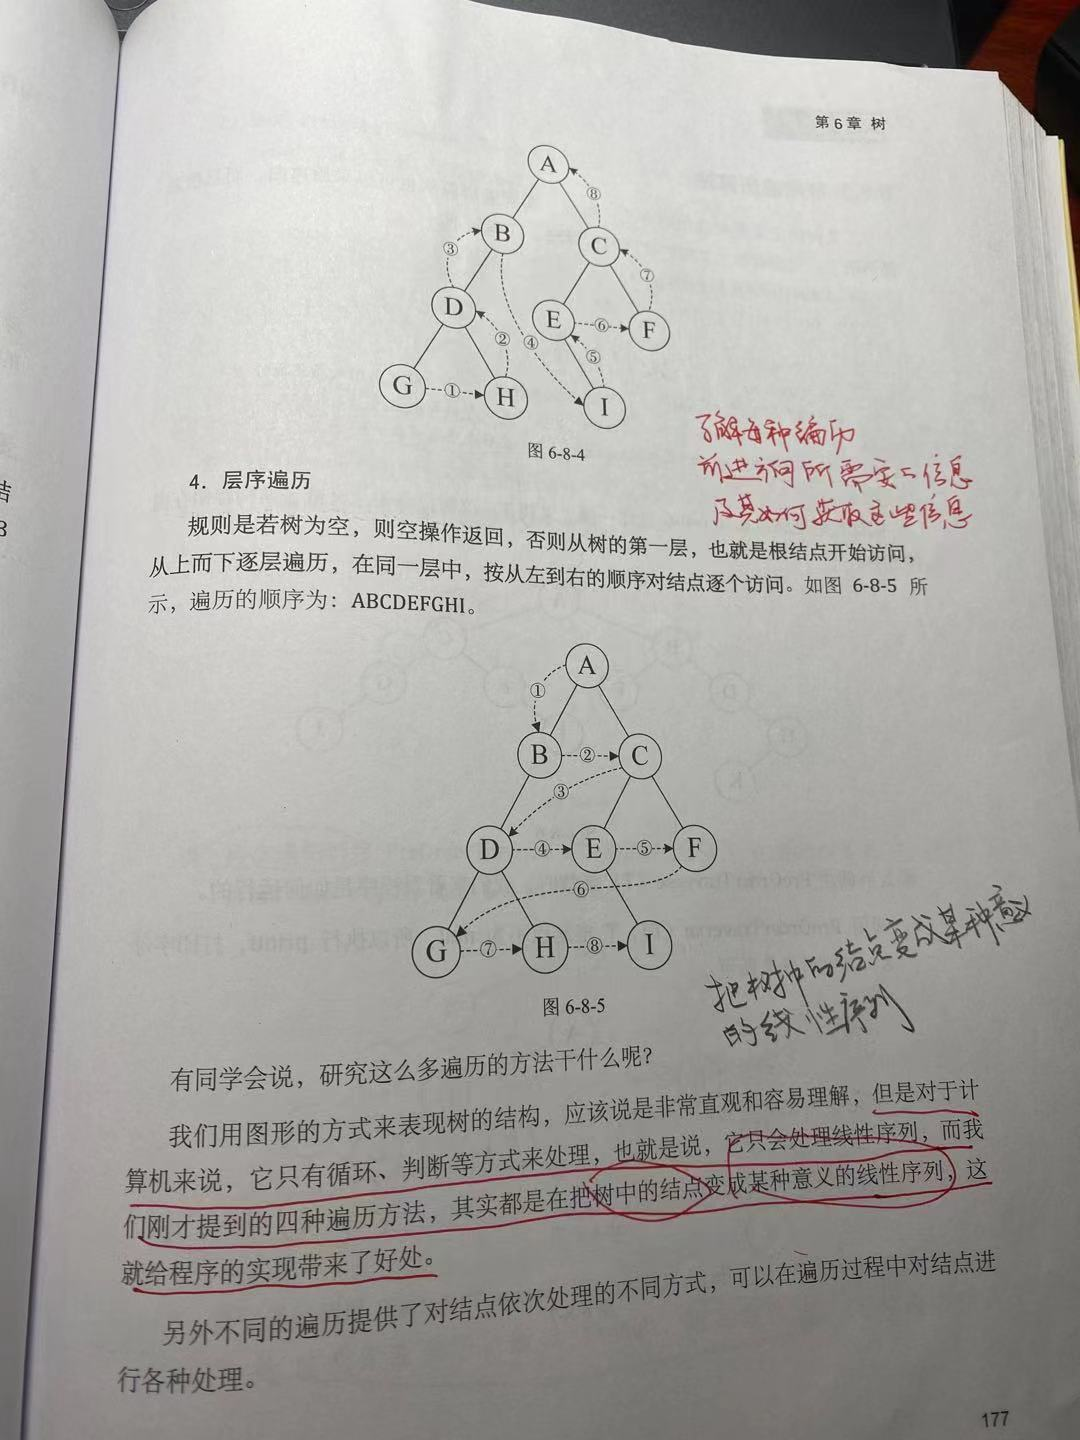 第6章 树
A
⑧
B
C
③
⑦
D
E
⑥
F
②
④
⑤
G
①
H
I
图 6-8-4
了解每种编历
前进方向所需要的信息
及其如何获取这些信息
结
3
4．层序遍历
规则是若树为空，则空操作返回，否则从树的第一层，也就是根结点开始访问，
从上而下逐层遍历，在同一层中，按从左到右的顺序对结点逐个访问。如图 6-8-5 所
示，遍历的顺序为：ABCDEFGHI。
A
①
B
②
C
③
D
④
E
⑤
F
⑥
G
⑦
H
⑧
I
图 6-8-5
把树中的结点变成某种意义
的线性序列
有同学会说，研究这么多遍历的方法干什么呢？
我们用图形的方式来表现树的结构，应该说是非常直观和容易理解，但是对于计
算机来说，它只有循环、判断等方式来处理，也就是说，它只会处理线性序列，而我
们刚才提到的四种遍历方法，其实都是在把树中的结点变成某种意义的线性序列，这
就给程序的实现带来了好处。
另外不同的遍历提供了对结点依次处理的不同方式，可以在遍历过程中对结点进
行各种处理。
177